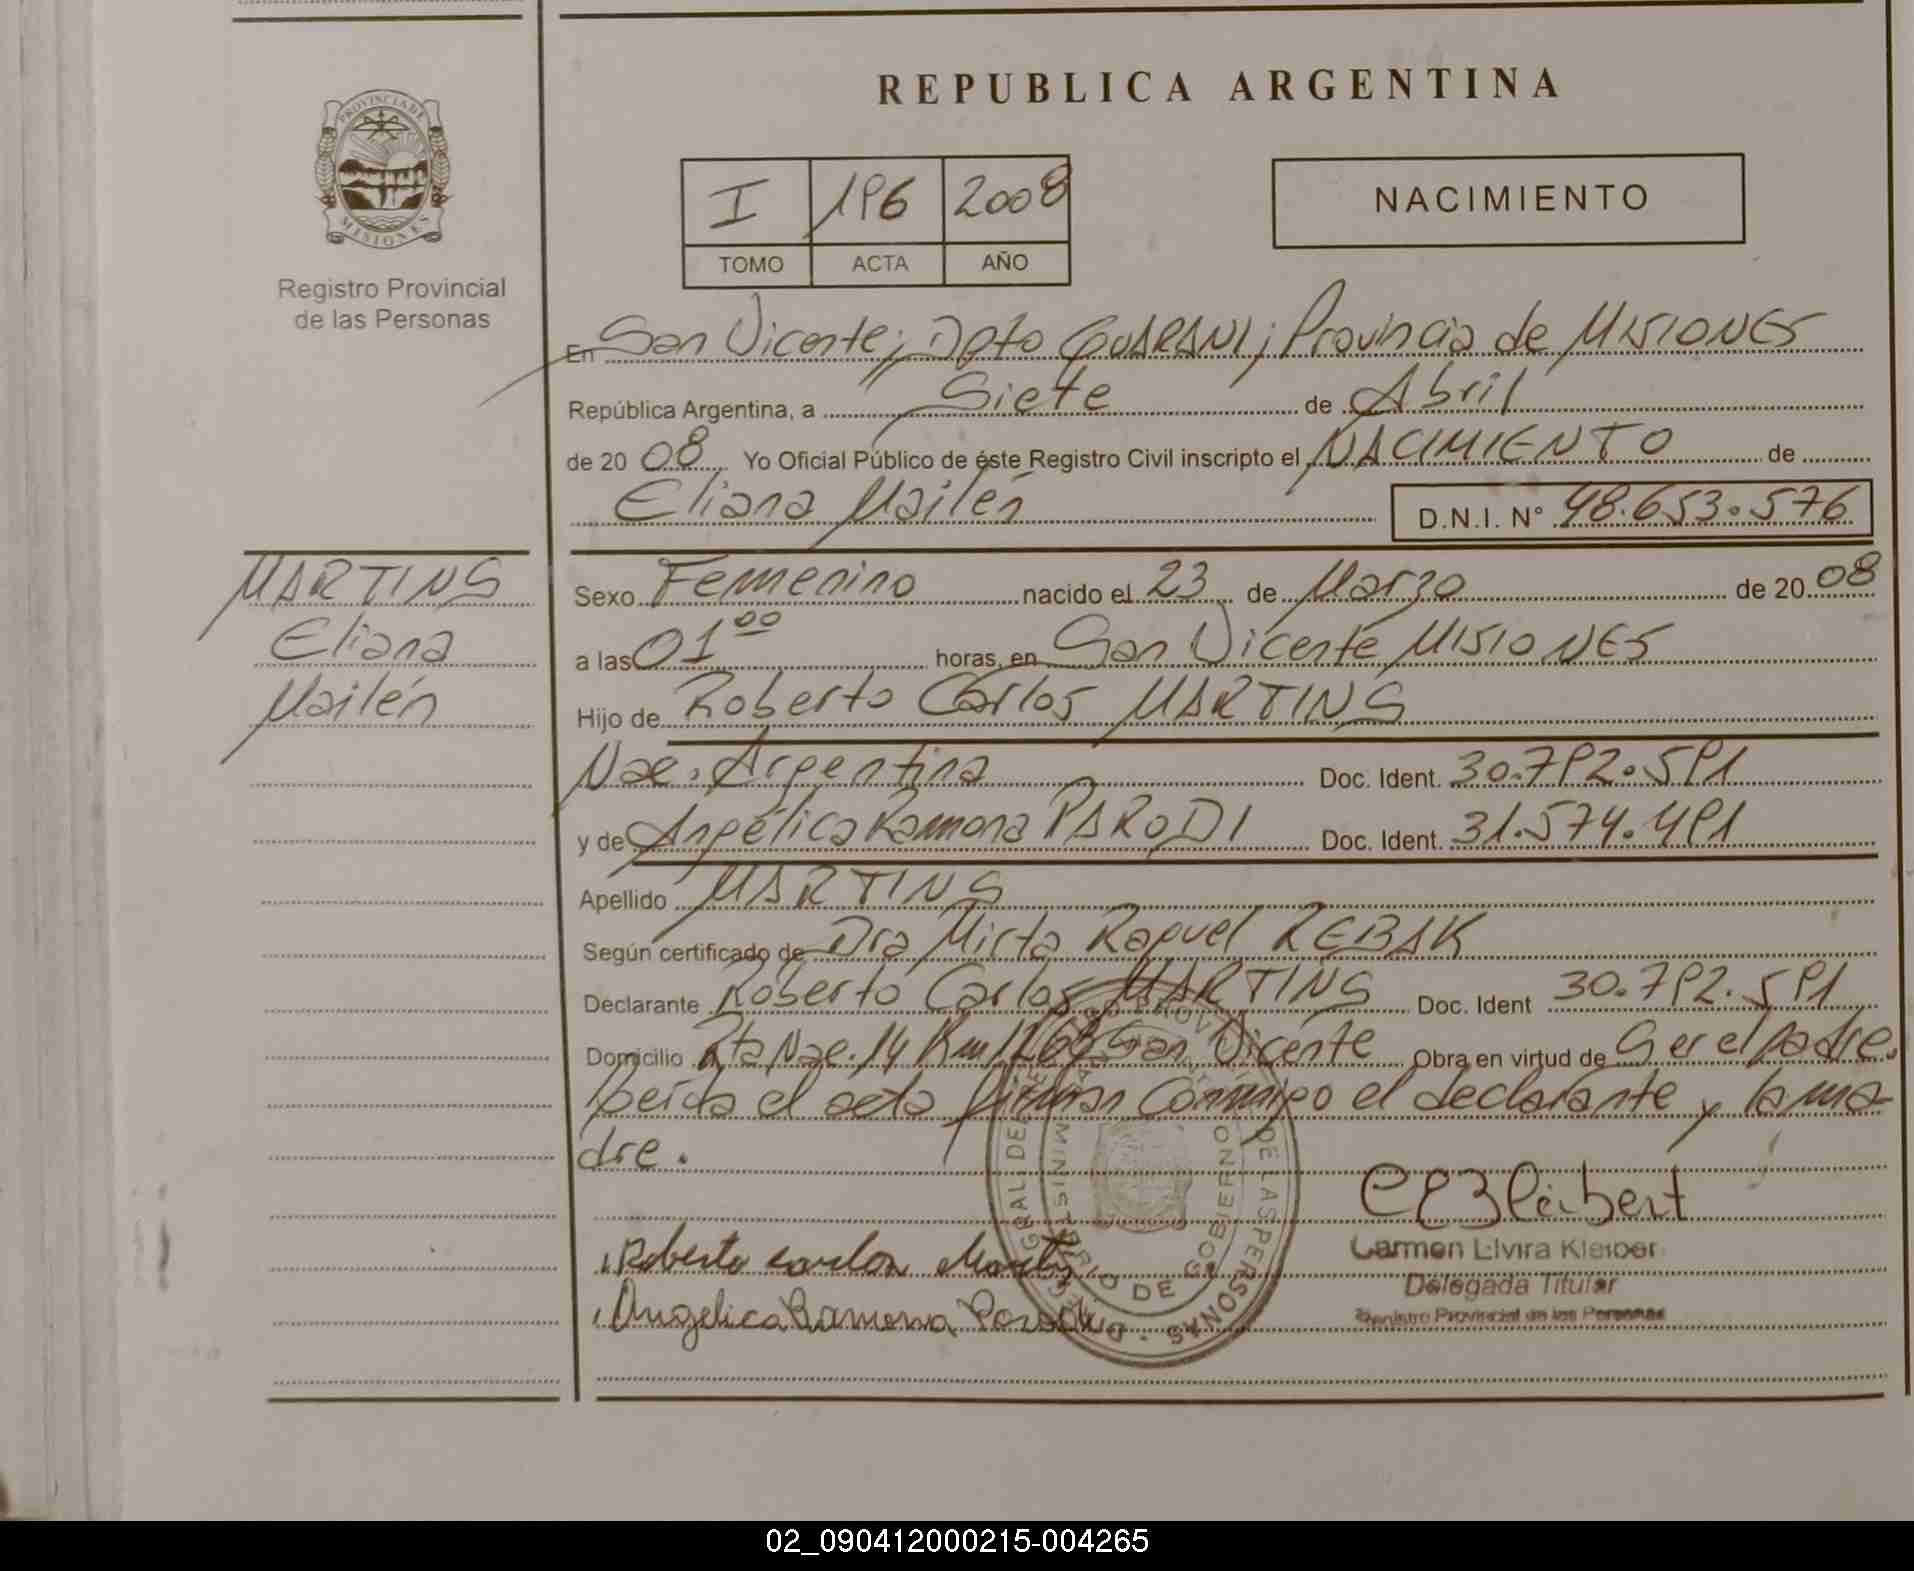 REPUBLICA ARGENTINA
PROVINCIA DE
MISIONES
Registro Provincial
de las Personas
I 196 2008
TOMO ACTA AÑO
NACIMIENTO
En San Vicente; Dpto GUARANI; Provincia de MISIONES
República Argentina, a Siete de Abril
de 20 08 Yo Oficial Público de éste Registro Civil inscripto el NACIMIENTO de
Eliana Mailén D.N.I. N° 48.653.576
MARTINS
Eliana
Mailén
Sexo Femenino nacido el 23 de Marzo de 20 08
a las 01 00 horas, en San Vicente MISIONES
Hijo de Roberto Carlos MARTINS
Nac. Argentina Doc. Ident. 30.792.591
y de Angélica Ramona PARODI Doc. Ident. 31.574.491
Apellido MARTINS
Según certificado de Dra Mirta Raquel REBAK
Declarante Roberto Carlos MARTINS Doc. Ident 30.792.591
Domicilio Rta Nac. 14 Km San Vicente Obra en virtud de Ser el padre.
Leída el acta firman Conmigo el declarante y la ma-
dre.
Roberto carlos
Angelica Ramona
MINISTERIO DE GOBIERNO
DE LAS PERSONAS
Carmen Elvira Kleiber
Delegada Titular
Registro Provincial de las Personas
02_090412000215-004265